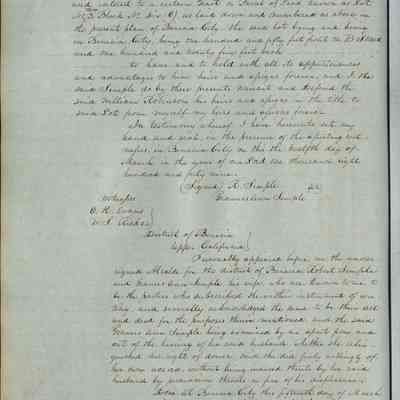 and interest to a certain tract or parcel of land known as Lot
No. 3, Block N. Div. C) as laid down and numbered as above on
the present plan of Benicia City, the said lot lying and being
in Benicia City, being one hundred and fifty feet front on B Street
and one hundred and twenty five feet back
to have and to hold with all its appurtenances
and advantages to him heirs and assigns forever, and I the
said Semple do by these presents warrant and defend the
said William Robinson his heirs and assigns in the title to
said Lot from myself my heirs and assigns forever
In testimony whereof I have hereunto set my
hand and seal, in the presence of the
in Benicia City on this the twelfth day of
March in the year of our Lord one thousand eight
hundred and forty nine.
(Signed) R. Semple
Frances Ann Semple
Witnesses
District of Benicia
Upper California
Personally appeared before me the under
signed Alcalde for the district of Benicia Robert Semple
and Frances Ann Semple his wife, who are known to me to
be the parties who subscribed the within instrument of wri
ting and severally acknowledged the same to be their act
and deed for the purposes therein mentioned and the said
Frances Ann Semple being examined by me apart from and
out of the hearing of her said husband, states she relin
quished her right of dower and she did freely willingly of
her own accord, without being moved thereto by her said
husband by persuasion threats or fear of his displeasure.
Done at Benicia City this fourteenth day of March